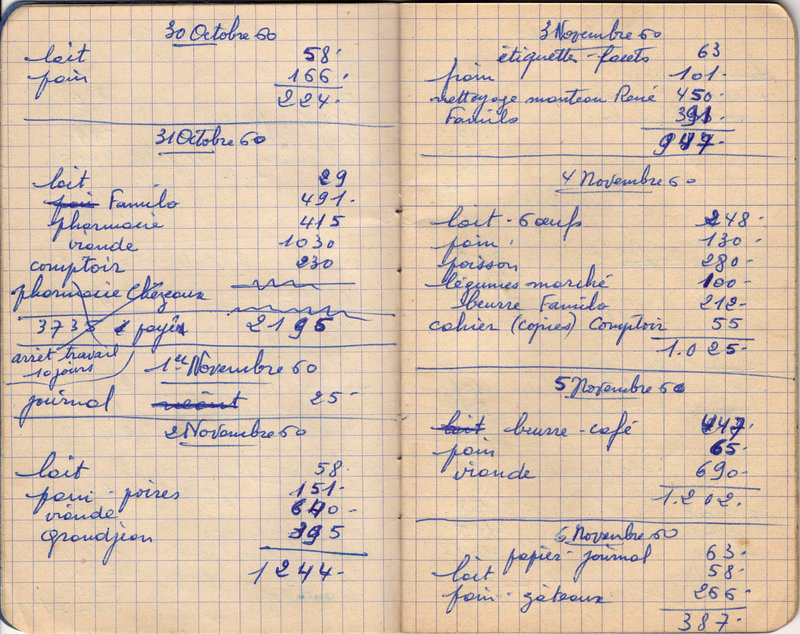 30 Octobre 60
lait 58.
pain 166.
224.
31 Octobre 60
lait 29
pain Familo 491.
pharmacie 415
viande 1030
comptoir 230
pharmacie Chézeaux
3735 payés 2195
arrêt travail
10 jours
1er Novembre 60
journal néant 25-
2 Novembre 60
lait 58.
pain - poires 151-
viande 640-
grandjean 395
1244-
3 Novembre 60
étiquettes - facets 63
pain 101.
nettoyage manteau René 450.
Familo
947-
4 Novembre 60
lait - 6 œufs 248-
pain 130-
poisson 280-
légumes marché 100-
beurre Familo 212-
cahier (copies) Comptoir 55
1.025-
5 Novembre 60
lait beurre - café 447.
pain 65-
viande 690-
1.202.
6 Novembre 60
papier - journal 63.
lait 58.
pain - gâteaux 266-
387-